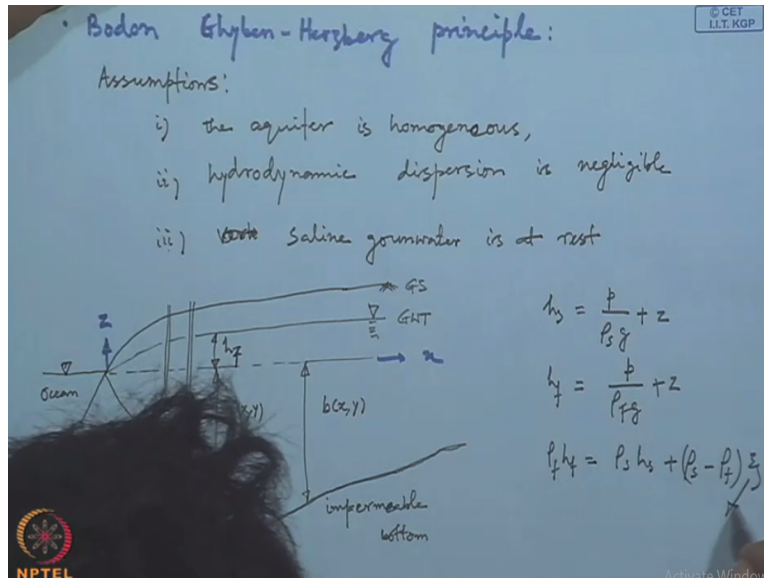 © CET
I.I.T. KGP
• Bodon Ghyben-Herzberg principle:
Assumptions:
i) the aquifer is homogeneous,
ii) hydrodynamic dispersion is negligible
iii) saline grounwater is at rest
GS
GWT
z
h_f
x
Ocean
x,y)
b(x,y)
impermeable
bottom
h_s = p/ρ_s g + z
h_f = p/ρ_f g + z
ρ_f h_f = ρ_s h_s + (ρ_s - ρ_f) ξ
NPTEL
Activate Window